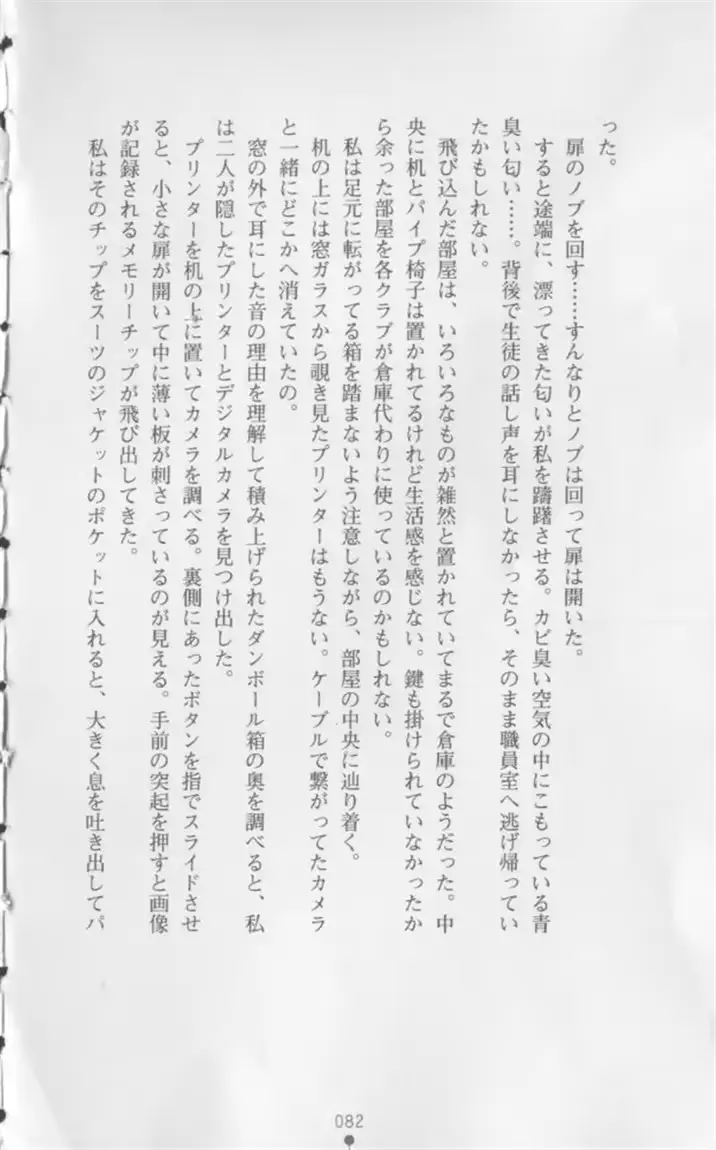 った。
　扉のノブを回す……すんなりとノブは回って扉は開いた。
　すると途端に、漂ってきた匂いが私を躊躇させる。カビ臭い空気の中にこもっている青
臭い匂い……。背後で生徒の話し声を耳にしなかったら、そのまま職員室へ逃げ帰ってい
たかもしれない。
　飛び込んだ部屋は、いろいろなものが雑然と置かれていてまるで倉庫のようだった。中
央に机とパイプ椅子は置かれてるけれど生活感を感じない。鍵も掛けられていなかったか
ら余った部屋を各クラブが倉庫代わりに使っているのかもしれない。
　私は足元に転がってる箱を踏まないよう注意しながら、部屋の中央に辿り着く。
　机の上には窓ガラスから覗き見たプリンターはもうない。ケーブルで繋がってたカメラ
と一緒にどこかへ消えていたの。
　窓の外で耳にした音の理由を理解して積み上げられたダンボール箱の奥を調べると、私
は二人が隠したプリンターとデジタルカメラを見つけ出した。
　プリンターを机の上に置いてカメラを調べる。裏側にあったボタンを指でスライドさせ
ると、小さな扉が開いて中に薄い板が刺さっているのが見える。手前の突起を押すと画像
が記録されるメモリーチップが飛び出してきた。
　私はそのチップをスーツのジャケットのポケットに入れると、大きく息を吐き出してパ
082